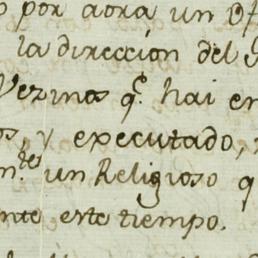 por aora un
la direccion del
Vezinos q.e hai en
os, y executado,
un Religioso q
ente este tiempo.